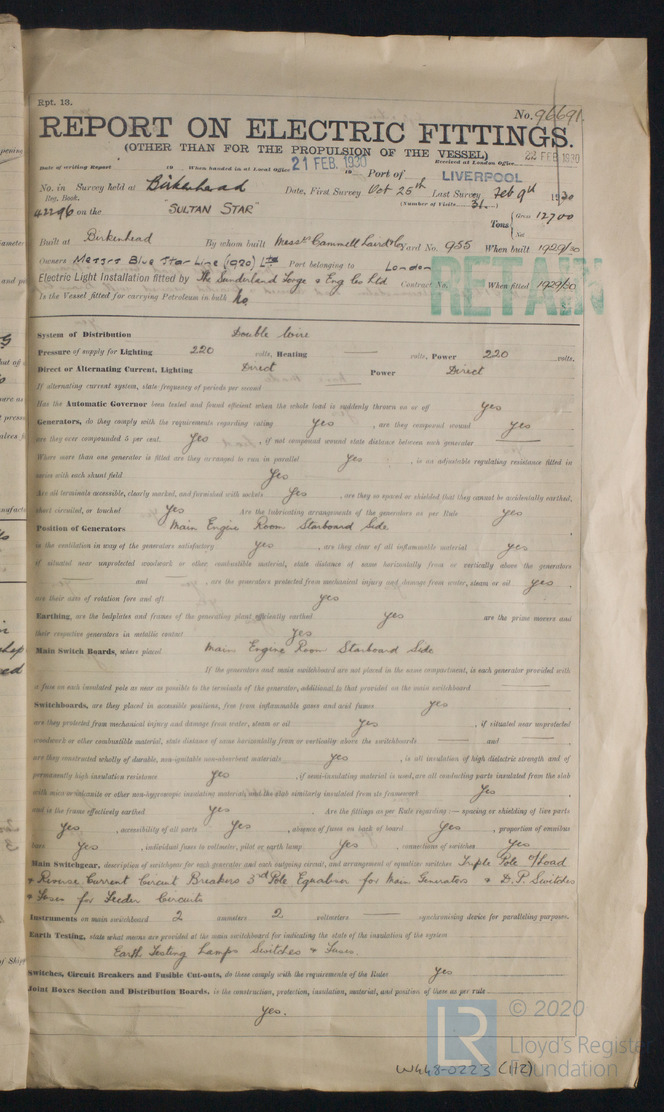 Rpt. 13.
No. 96691.
REPORT ON ELECTRIC FITTINGS.
(OTHER THAN FOR THE PROPULSION OF THE VESSEL)
22 FEB 1930
Date of writing Report 19 When handed in at Local Office 21 FEB. 1930 19 Port of LIVERPOOL Received at London Office
No. in Survey held at Birkenhead Date, First Survey Oct 25th Last Survey Feb 9th 1930
Reg. Book. (Number of Visits 31.)
42296 on the "SULTAN STAR" Tons { Gross 12700
Net
Built at Birkenhead By whom built Messrs Cammell Laird & Co Yard No. 955 When built 1929/30
Owners Messrs Blue Star Line (1920) Ltd Port belonging to London
Electric Light Installation fitted by The Sunderland Forge & Eng Co Ltd Contract No. When fitted 1929/30
Is the Vessel fitted for carrying Petroleum in bulk No
RETAIN
System of Distribution Double Wire
Pressure of supply for Lighting 220 volts, Heating — volts, Power 220 volts.
Direct or Alternating Current, Lighting Direct Power Direct
If alternating current system, state frequency of periods per second
Has the Automatic Governor been tested and found efficient when the whole load is suddenly thrown on or off Yes
Generators, do they comply with the requirements regarding rating Yes, are they compound wound Yes
are they over compounded 5 per cent. Yes, if not compound wound state distance between each generator —
Where more than one generator is fitted are they arranged to run in parallel Yes, is an adjustable regulating resistance fitted in
series with each shunt field Yes
Are all terminals accessible, clearly marked, and furnished with sockets Yes, are they so spaced or shielded that they cannot be accidentally earthed,
short circuited, or touched Yes Are the lubricating arrangements of the generators as per Rule Yes
Position of Generators Main Engine Room Starboard Side
is the ventilation in way of the generators satisfactory Yes, are they clear of all inflammable material Yes
if situated near unprotected woodwork or other combustible material, state distance of same horizontally from or vertically above the generators
— and —, are the generators protected from mechanical injury and damage from water, steam or oil Yes,
are their axes of rotation fore and aft Yes
Earthing, are the bedplates and frames of the generating plant efficiently earthed Yes are the prime movers and
their respective generators in metallic contact Yes
Main Switch Boards, where placed Main Engine Room Starboard Side
If the generators and main switchboard are not placed in the same compartment, is each generator provided with
a fuse on each insulated pole as near as possible to the terminals of the generator, additional to that provided on the main switchboard —
Switchboards, are they placed in accessible positions, free from inflammable gases and acid fumes Yes
are they protected from mechanical injury and damage from water, steam or oil Yes, if situated near unprotected
woodwork or other combustible material, state distance of same horizontally from or vertically above the switchboards — and —,
are they constructed wholly of durable, non-ignitable non-absorbent materials Yes, is all insulation of high dielectric strength and of
permanently high insulation resistance Yes, if semi-insulating material is used, are all conducting parts insulated from the slab
with mica or micanite or other non-hygroscopic insulating material, and the slab similarly insulated from its framework Yes,
and is the frame effectively earthed Yes. Are the fittings as per Rule regarding:— spacing or shielding of live parts
Yes, accessibility of all parts Yes, absence of fuses on back of board Yes, proportion of omnibus
bars Yes, individual fuses to voltmeter, pilot or earth lamp Yes, connections of switches Yes
Main Switchgear, description of switchgear for each generator and each outgoing circuit, and arrangement of equaliser switches Triple Pole O/Load
& Reverse Current Circuit Breakers 3rd Pole Equaliser for Main Generators & D.P. Switches
& Fuses for Feeder Circuits
Instruments on main switchboard 2 ammeters 2 voltmeters — synchronising device for paralleling purposes.
Earth Testing, state what means are provided at the main switchboard for indicating the state of the insulation of the system
Earth Testing Lamps Switches & Fuses.
Switches, Circuit Breakers and Fusible Cut-outs, do these comply with the requirements of the Rules Yes
Joint Boxes Section and Distribution Boards, is the construction, protection, insulation, material, and position of these as per rule
Yes.
© 2020
LR
Lloyd's Register
Foundation
W448-0223 (1/2)